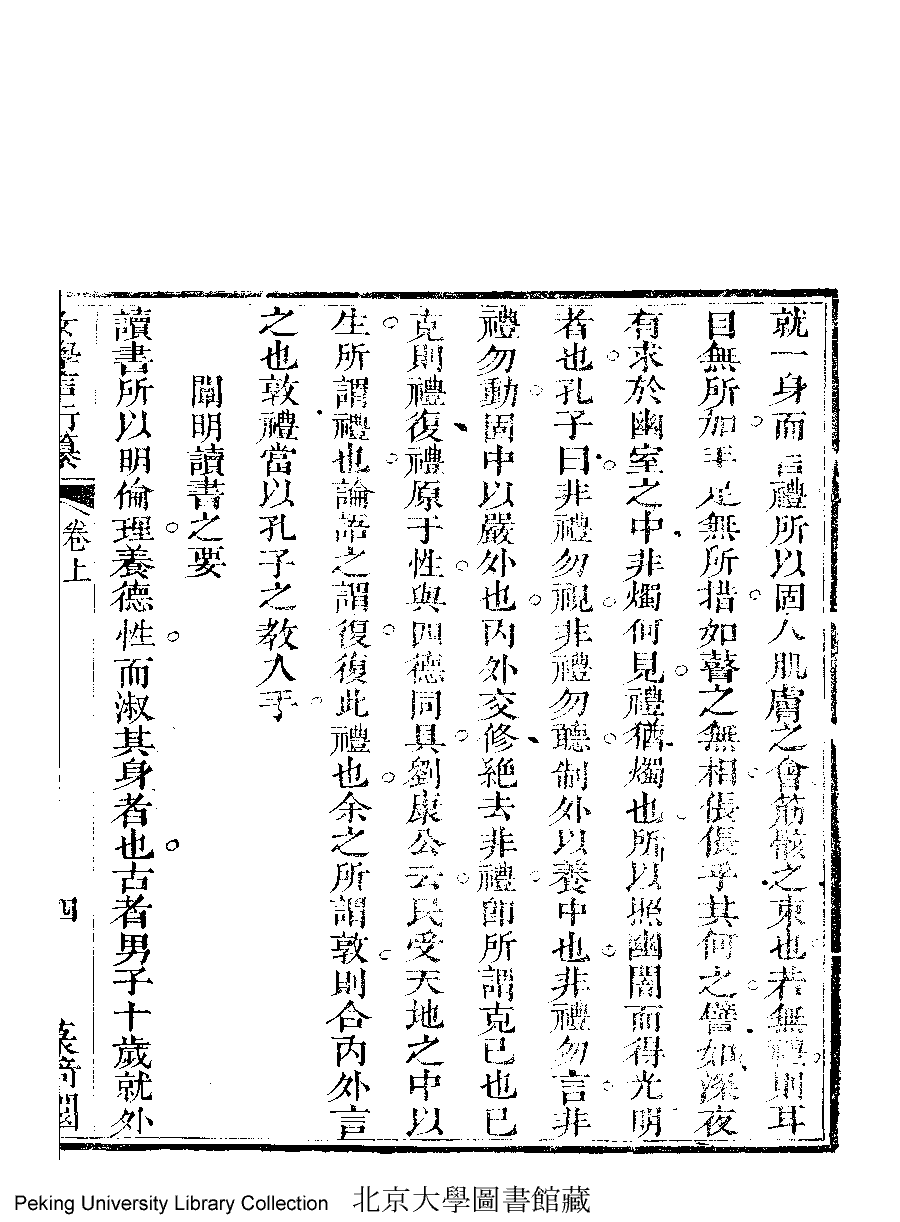 就一身而言禮所以固人肌膚之會筋骸之束也若無禮則耳
目無所加手足無所措如瞽之無相倀倀乎其何之譬如深夜
有求於幽室之中非燭何見禮猶燭也所以照幽闇而得光明
者也孔子曰非禮勿視非禮勿聽制外以養中也非禮勿言非
禮勿動固中以嚴外也內外交修絶去非禮卽所謂克己也已
克則禮復禮原于性與四德同具劉康公云民受天地之中以
生所謂禮也論語之謂復復此禮也余之所謂敦則合內外言
之也敦禮當以孔子之教入乎
闡明讀書之要
讀書所以明倫理養德性而淑其身者也古者男子十歲就外
女學言行纂
卷上
四
Peking University Library Collection 北京大學圖書館藏